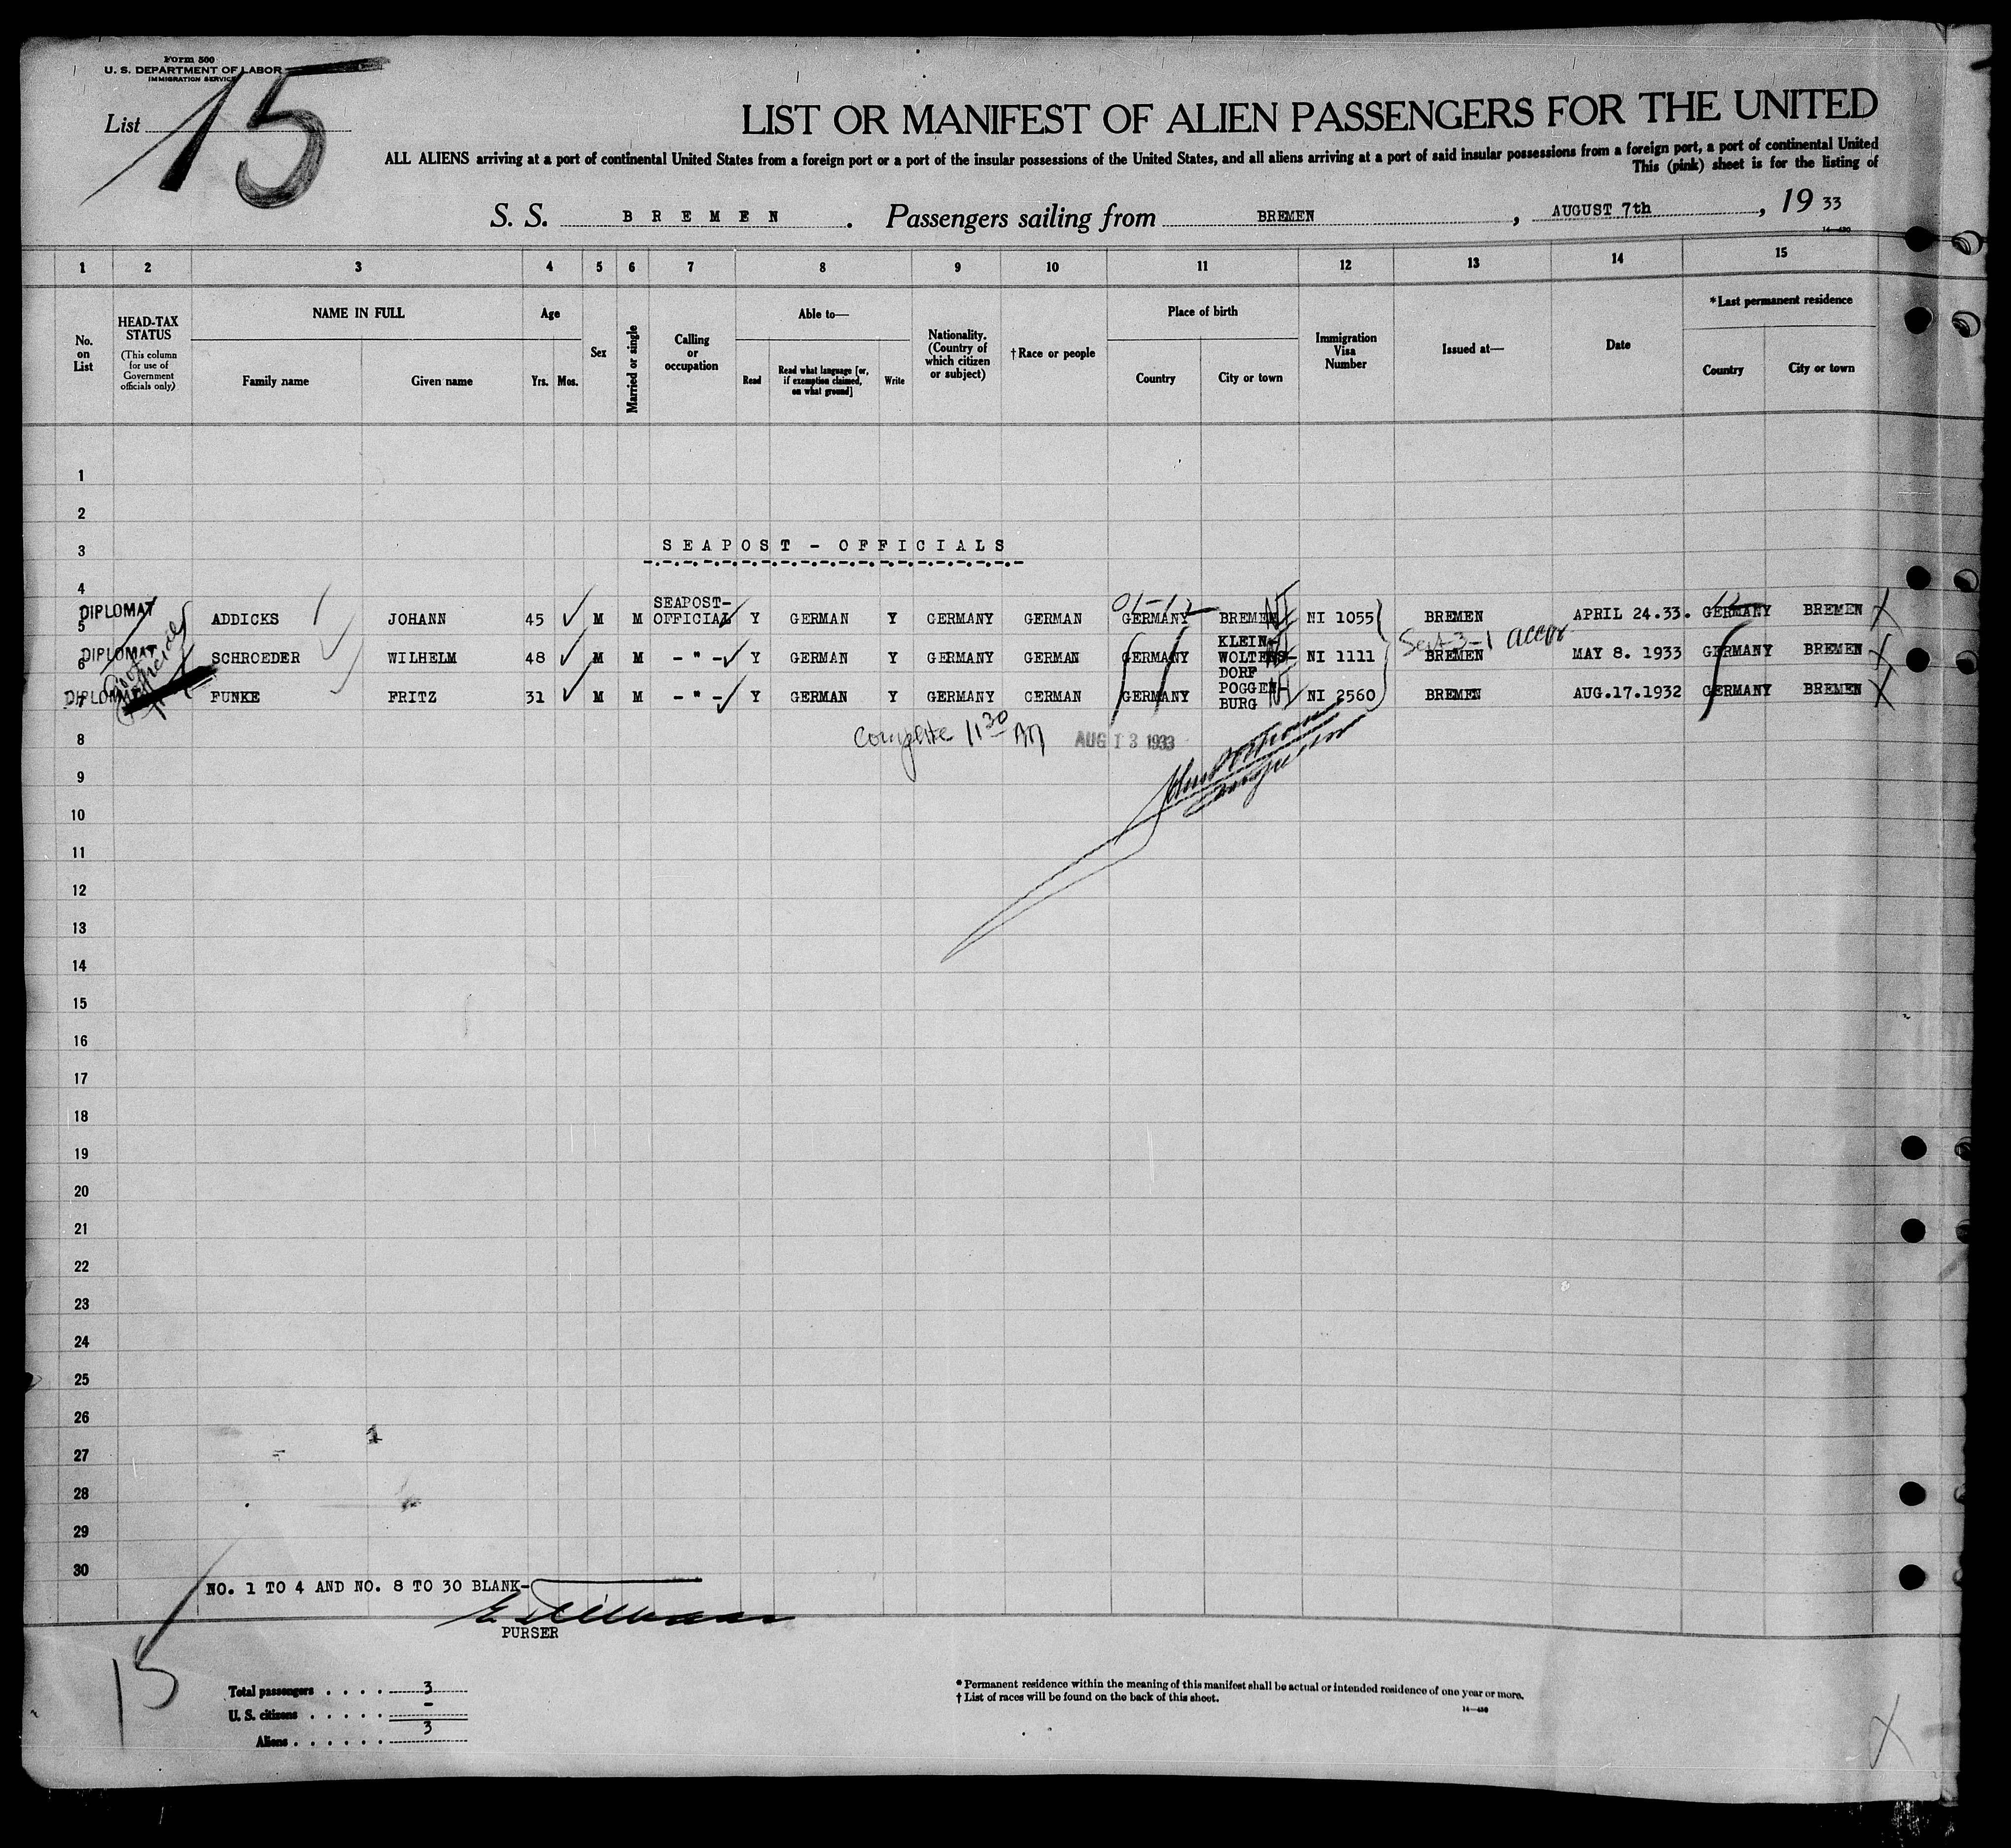 Form 500
U. S. DEPARTMENT OF LABOR
IMMIGRATION SERVICE
List 15
LIST OR MANIFEST OF ALIEN PASSENGERS FOR THE UNITED
ALL ALIENS arriving at a port of continental United States from a foreign port or a port of the insular possessions of the United States, and all aliens arriving at a port of said insular possessions from a foreign port, a port of continental United
This (pink) sheet is for the listing of
S. S. BREMEN. Passengers sailing from BREMEN, AUGUST 7th, 19 33
14—430
1 2 3 4 5 6 7 8 9 10 11 12 13 14 15
No. on List
HEAD-TAX STATUS
(This column for use of Government officials only)
NAME IN FULL
Family name Given name
Age
Yrs. Mos.
Sex
Married or single
Calling or occupation
Able to—
Read
Read what language [or, if exemption claimed, on what ground]
Write
Nationality. (Country of which citizen or subject)
†Race or people
Place of birth
Country City or town
Immigration Visa Number
Issued at—
Date
*Last permanent residence
Country City or town
1
2
3 SEAPOST - OFFICIALS
4
5 DIPLOMAT ADDICKS JOHANN 45 M M SEAPOST-OFFICIAL Y GERMAN Y GERMANY GERMAN GERMANY BREMEN NI 1055 BREMEN APRIL 24.33. GERMANY BREMEN
6 DIPLOMAT SCHROEDER WILHELM 48 M M - " - Y GERMAN Y GERMANY GERMAN GERMANY KLEIN-WOLTERS-DORF NI 1111 BREMEN MAY 8. 1933 GERMANY BREMEN
7 FUNKE FRITZ 31 M M - " - Y GERMAN Y GERMANY CERMAN GERMANY POGGENBURG NI 2560 BREMEN AUG.17.1932 GERMANY BREMEN
8 complete 11 30 AM AUG 13 1933
9
10
11
12
13
14
15
16
17
18
19
20
21
22
23
24
25
26
27
28
29
30
NO. 1 TO 4 AND NO. 8 TO 30 BLANK-
PURSER
15
Total passengers . . . . 3
U. S. citizens . . . . . -
Aliens . . . . . . 3
* Permanent residence within the meaning of this manifest shall be actual or intended residence of one year or more.
† List of races will be found on the back of this sheet.
14—430